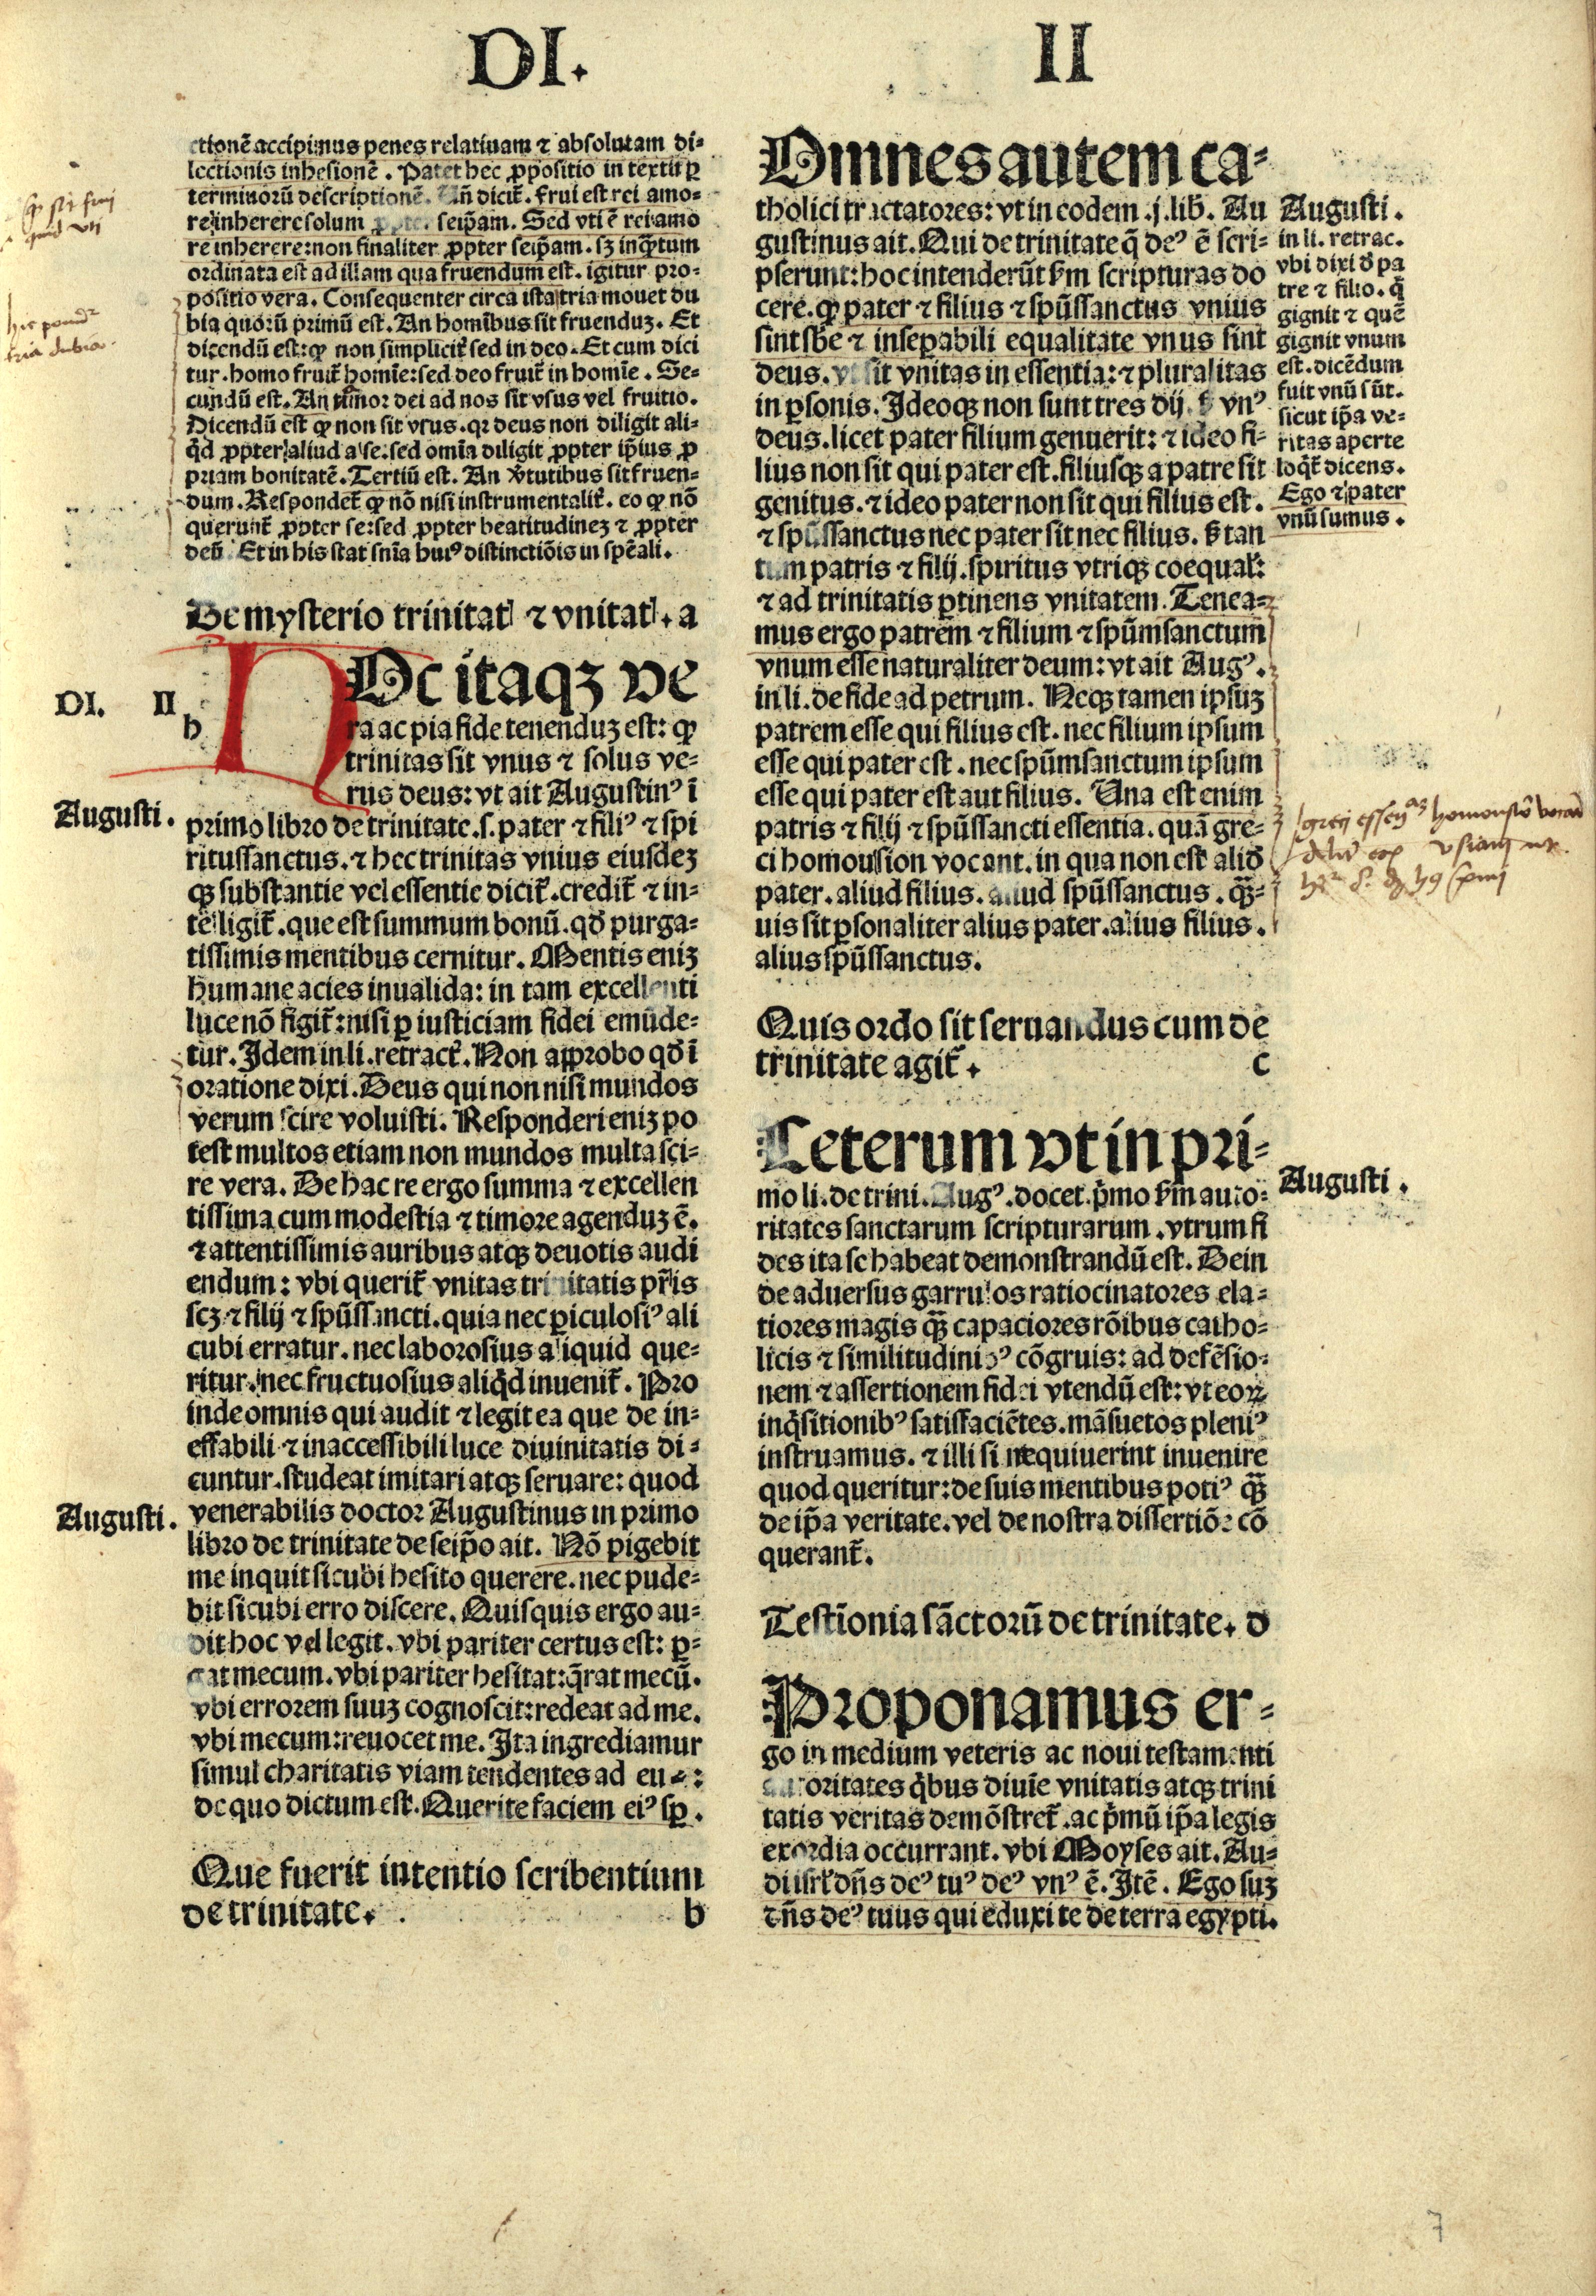 DI. II
ctionē accipimus penes relatiuam ⁊ absolutam di-
lectionis inhesionē. Patet hec ꝓpositio in textu ꝑ
terminorū descriptionē. Uñ dicit̄. frui est rei amo-
re inherere solum seip̄am. Sed vti ē rei amo
re inherere: non finaliter ꝓpter seip̄am. sꝫ inqꝫtum
ordinata est ad illam qua fruendum est. igitur pro-
positio vera. Consequenter circa ista tria mouet du
bia quorū primū est. An homībus sit fruenduꝫ. Et
dicendū est: ꝙ non simplicit̄ sed in deo. Et cum dici
tur. homo fruit̄ homīe: sed deo fruit̄ in homīe. Se-
cundū est. An dei ad nos sit vsus vel fruitio.
Dicendū est ꝙ non sit vsus. qꝛ deus non diligit ali-
qd̄ ꝓpter aliud a se: sed omīa diligit ꝓpter ip̄ius ꝓ
priam bonitatē. Tertiū est. An v̄tutibus sit fruen-
dum. Respondet̄ ꝙ nō nisi instrumentalit̄. eo ꝙ nō
querunt̄ ꝓpter se: sed ꝓpter beatitudineꝫ ⁊ ꝓpter
deū. Et in his stat snīa huiꝰ distinctiōis in spēali.
De mysterio trinitatꝭ ⁊ vnitatꝭ. a
DI. II
h
Oc itaqꝫ ve
ra ac pia fide tenenduꝫ est: ꝙ
trinitas sit vnus ⁊ solus ve-
rus deus: vt ait Augustinꝰ ī
Augusti.
primo libro de trinitate. s. pater ⁊ filiꝰ ⁊ spi
ritussanctus. ⁊ hec trinitas vnius eiusdeꝫ
qꝫ substantie vel essentie dicit̄. credit̄ ⁊ in-
telligit̄. que est summum bonū. qd̄ purga-
tissimis mentibus cernitur. Mentis eniꝫ
humane acies inualida: in tam excellenti
luce nō figit̄: nisi ꝑ iusticiam fidei emūde-
tur. Idem in li. retract̄. Non approbo qd̄ ī
oratione dixi. Deus qui non nisi mundos
verum scire voluisti. Responderi eniꝫ po
test multos etiam non mundos multa sci-
re vera. De hac re ergo summa ⁊ excellen
tissima cum modestia ⁊ timore agenduꝫ ē.
⁊ attentissimis auribus atqꝫ deuotis audi
endum: vbi querit̄ vnitas trinitatis pr̄is
scꝫ ⁊ filij ⁊ spūssancti. quia nec ꝑiculosiꝰ ali
cubi erratur. nec laborosius aliquid que-
ritur. nec fructuosius aliqd̄ inuenit̄. Pro
inde omnis qui audit ⁊ legit ea que de in-
effabili ⁊ inaccessibili luce diuinitatis di-
cuntur. studeat imitari atqꝫ seruare: quod
Augusti.
venerabilis doctor Augustinus in primo
libro de trinitate de seip̄o ait. Nō pigebit
me inquit sicubi hesito querere. nec pude-
bit sicubi erro discere. Quisquis ergo au-
dit hoc vel legit. vbi pariter certus est: ꝑ-
gat mecum. vbi pariter hesitat: q̄rat mecū.
vbi errorem suuꝫ cognoscit: redeat ad me.
vbi mecum: reuocet me. Ita ingrediamur
simul charitatis viam tendentes ad eu
de quo dictum est. Querite faciem eiꝰ sꝑ.
Que fuerit intentio scribentium
de trinitate. b
Omnes autem ca-
tholici tractatores: vt in eodem .j. lib. Au
gustinus ait. Qui de trinitate q̄ deꝰ ē scri-
pserunt: hoc intenderūt ẜm scripturas do
cere. ꝙ pater ⁊ filius ⁊ spūssanctus vnius
sint sb̄e ⁊ inseꝑabili equalitate vnus sint
deus. vt sit vnitas in essentia: ⁊ pluralitas
in ꝑsonis. Ideoqꝫ non sunt tres dij. ẜ vnꝰ
deus. licet pater filium genuerit: ⁊ ideo fi-
lius non sit qui pater est. filiusqꝫ a patre sit
genitus. ⁊ ideo pater non sit qui filius est.
⁊ spūssanctus nec pater sit nec filius. ẜ tan
tum patris ⁊ filij. spiritus vtriqꝫ coequal̄:
⁊ ad trinitatis ꝑtinens vnitatem. Tenea-
mus ergo patrem ⁊ filium ⁊ spūmsanctum
vnum esse naturaliter deum: vt ait Augꝰ.
in li. de fide ad petrum. Neqꝫ tamen ipsuꝫ
patrem esse qui filius est. nec filium ipsum
esse qui pater est. nec spūmsanctum ipsum
esse qui pater est aut filius. Una est enim
patris ⁊ filij ⁊ spūssancti essentia. quā gre-
ci homousion vocant. in qua non est aliđ
pater. aliud filius. aliud spūssanctus. qꝫ̄-
uis sit ꝑsonaliter alius pater. alius filius.
alius spūssanctus.
Augusti.
in li. retrac.
vbi dixi đ pa
tre ⁊ filio. q̄
gignit ⁊ quē
gignit vnum
est. dicēdum
fuit vnū sūt.
sicut ip̄a ve-
ritas aperte
loqt̄ dicens.
Ego ⁊ pater
vnū sumus.
Quis ordo sit seruandus cum de
trinitate agit̄. c
Ceterum vt in pri-
mo li. de trini. Augꝰ. docet. p̄mo ẜm aucto-
ritates sanctarum scripturarum. vtrum fi
des ita se habeat demonstrandū est. Dein
de aduersus garrulos ratiocinatores ela-
tiores magis qꝫ̄ capaciores rōibus catho-
licis ⁊ similitudinibꝰ cōgruis: ad defēsio-
nem ⁊ assertionem fidei vtendū est: vt eoꝝ
inq̄sitionibꝰ satisfaciētes. māsuetos pleniꝰ
instruamus. ⁊ illi si nequiuerint inuenire
quod queritur: de suis mentibus potiꝰ qꝫ̄
de ip̄a veritate. vel de nostra dissertiōe cō
querant̄.
Augusti.
Testīonia sāctorū de trinitate. d
Proponamus er-
go in medium veteris ac noui testamenti
auctoritates qb̄us diuīe vnitatis atqꝫ trini
tatis veritas demōstret̄. ac p̄mū ip̄a legis
exordia occurrant. vbi Moyses ait. Au-
di isrl̄ dn̄s deꝰ tuꝰ deꝰ vnꝰ ē. Itē. Ego suꝫ
dn̄s deꝰ tuus qui eduxi te de terra egypti.
7